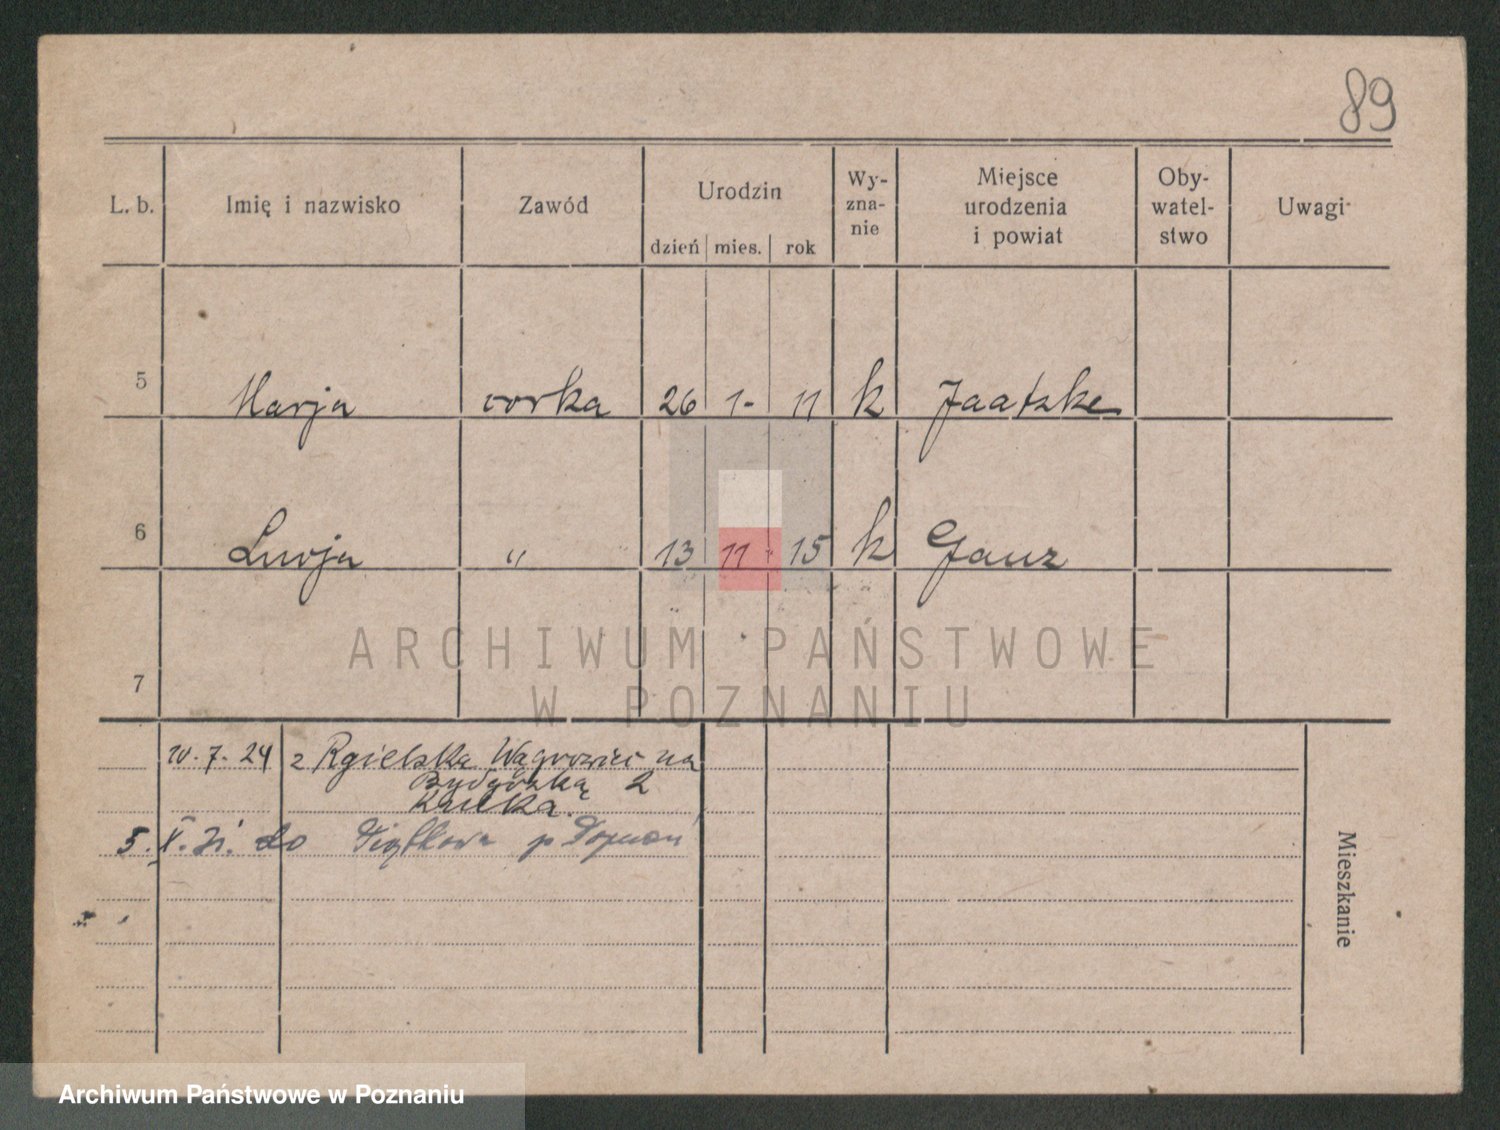 89
L. b. Imię i nazwisko Zawód Urodzin dzień mies. rok Wy-zna-nie Miejsce urodzenia i powiat Oby-watel-stwo Uwagi
5 Marja corka 26 1- 11 k Jaatzke
6 Lucja " 13 11 15 k Ganz
7
ARCHIWUM PAŃSTWOWE
W POZNANIU
10.7.24 z Rgielska Wągrowiec na
Bydgóską 2
5. X. 31. do
Mieszkanie
Archiwum Państwowe w Poznaniu